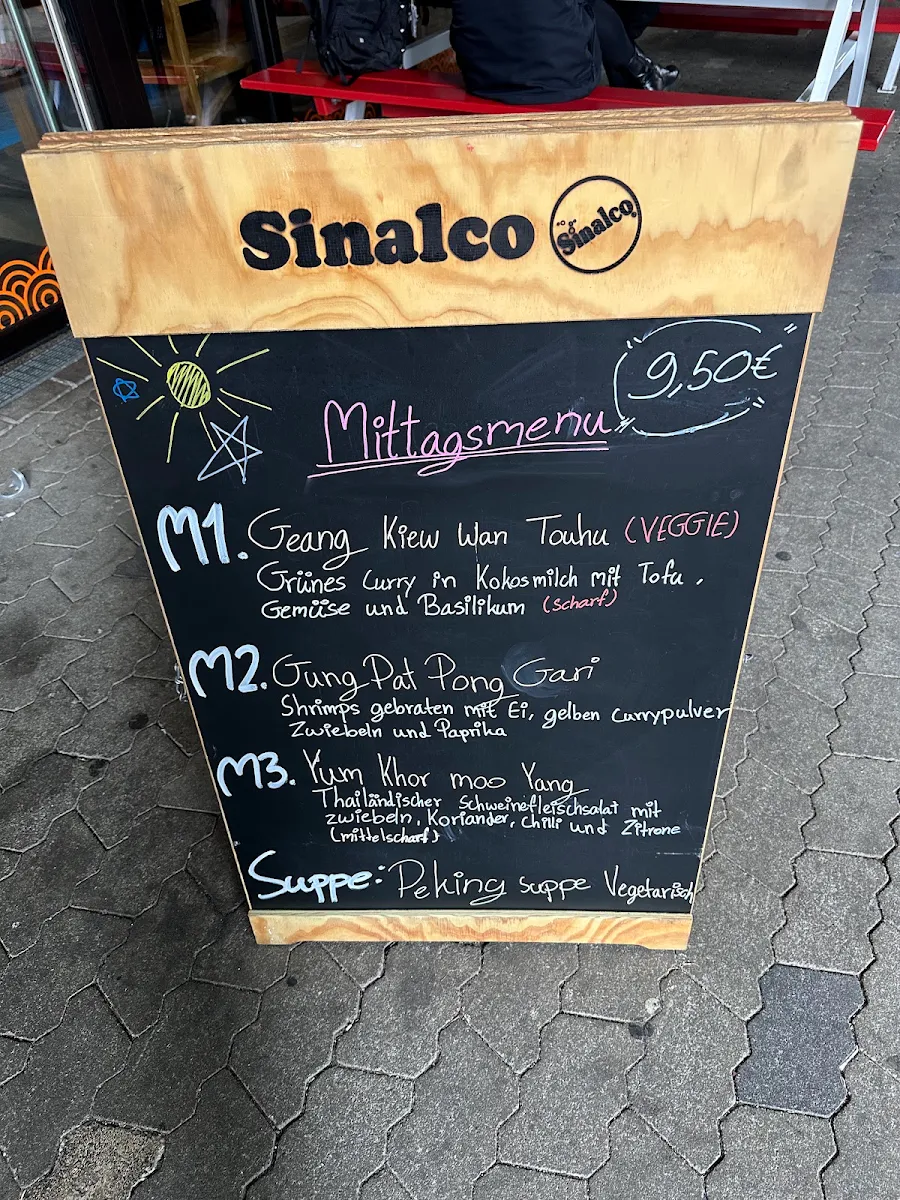 Sinalco Sinalco
9,50€
Mittagsmenu
M1. Geang Kiew Wan Touhu (VEGGIE)
Grünes Curry in Kokosmilch mit Tofu,
Gemüse und Basilikum (scharf)
M2. Gung Pat Pong Gari
Shrimps gebraten mit Ei, gelben Currypulver
Zwiebeln und Paprika
M3. Yum Khor moo Yang
Thailändischer Schweinefleischsalat mit
zwiebeln, Koriander, chilli und Zitrone
(mittelscharf)
Suppe: Peking suppe Vegetarisch